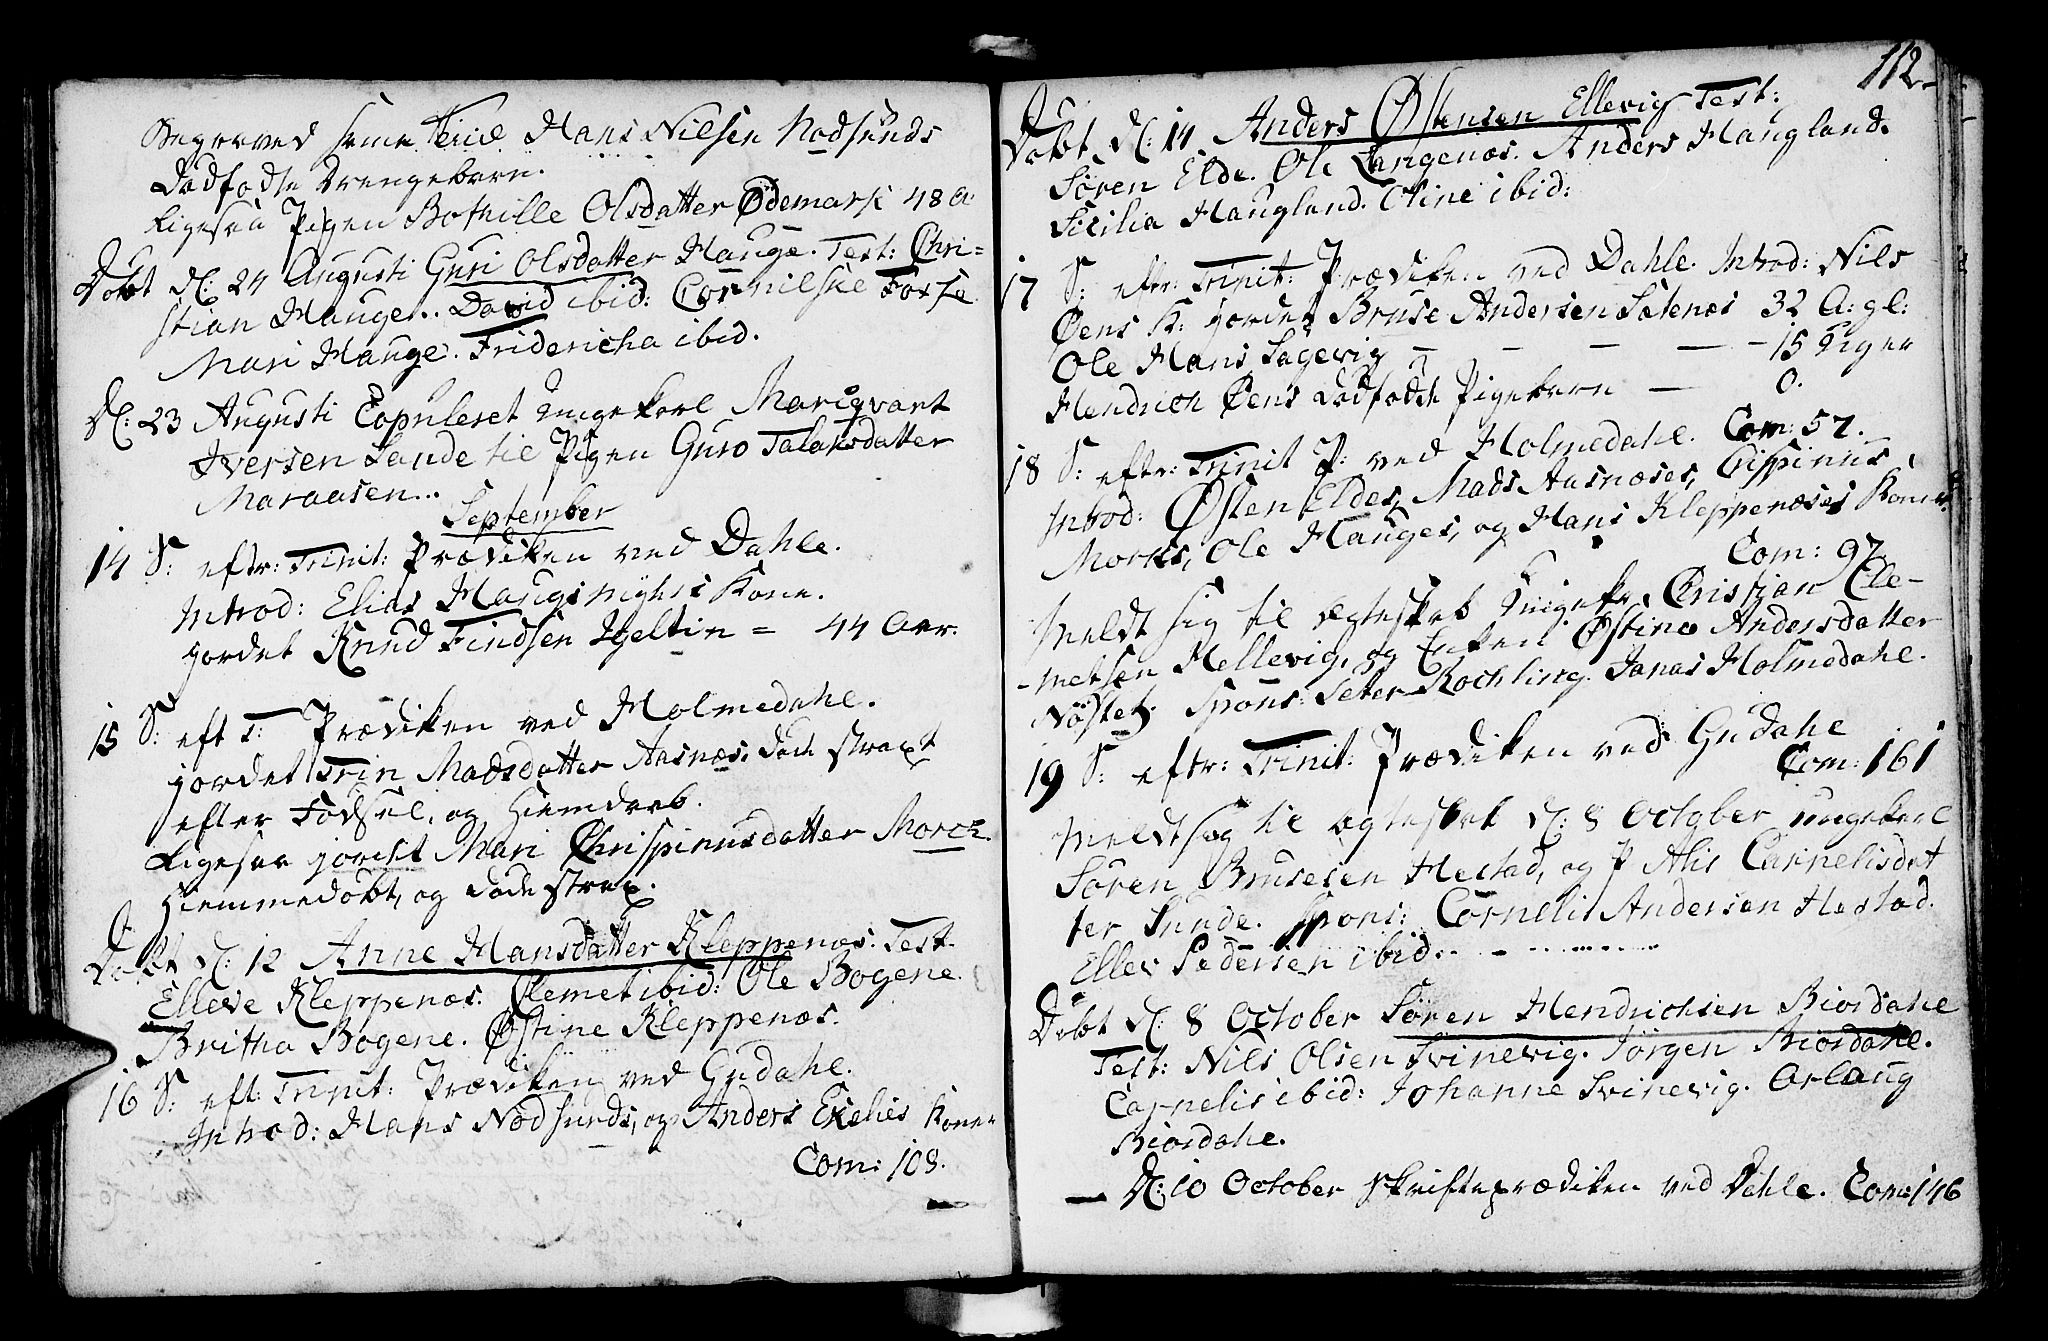 Begraved samme Tiid Hans Nilsen Nodsunds
Dødfødte Drengebarn.
Ligesaa Pigen Bothille Olsdatter Ødemark 48 A.
Døbt d: 24 Augusti Guri Olsdatter Hauge. Test: Chri=
stian Hauge.. David ibid: Cornilske Forse
Mari Hauge. Fridericha ibid.
D: 23 Augusti Copuleret Ungekarl Marqvart
Iversen Lande til Pigen Guro Talaksdatter
Maraasen...
September
14 S: eftr: Trinit: Prædiken ved Dahle.
Introd: Elias Haugs Kone.
jordet Knud Findsen Hjeltin = 44 Aar.
15 S: eft T: Prædiken ved Holmedahl.
jordet Trin Madsdatter Aasnæs. døde straxt
efter Fødsel, og Hiemdaab.
Ligesaa jordet Mari Chrispinusdatter Morch.
Hiemmedøbt, og døde strax.
Døbt d: 12 Anne Hansdatter Kleppenæs. Test.
Elleve Kleppenæs. Clemet ibid: Ole Bogene.
Britha Bogene. Østine Kleppenæs.
16 S: eft: Trinit: Prædiken ved Gudahl.
Introd: Hans Nødsunds, og Anders Koner
Com: 108.
112
Døbt d: 14 Anders Østensen Ellevig Test:
Søren Elde. Ole Langenæs. Anders Haugland.
Sicilia Haugland. Oline ibid:
17 S: eftr: Trinit: Prædiken ved Dahle. Introd: Nils
Øens K: jordet Bruse Andersen Salenæs 32 A: gl:
Ole Hans Sagevig — — — — 15 Uger
Hendrich Øens dødfødte Pigebarn — 0.
18 S: eftr: Trinit P: ved Holmedahl. Com: 57.
Introd: Østen Eldes, Mads Aasnæses, Crispinus
Morks, Ole Hauges, og Hans Kleppenæses Koner.
Com: 97
Meldt sig til Ægteskab Ungek. Christian Cle-
-metsen Hellevig, og Enken Østine Andersdatter
Nøstet. Spons: Peter Rochling. Jonas Holmedahl.
19 S: eftr: Trinit: Prædiken ved Gudahl
Com: 161
Meldt sig til Ægteskab d: 8 October ungekarl
Søren Brusesen Hestad, og P Alis Cornelisdat
ter Sunde. Spons: Cornelis Andersen Hestad.
Ellev Pedersen ibid.
Døbt d: 8 October Søren Hendrichsen Biordahl
Test: Nils Olsen Svinevig. Jørgen Biordahl.
Cornelis ibid: Johanne Svinevig. Orlaug
Biordahl.
— D: 10 October skrifteprædiken ved Dahle. Com: 146